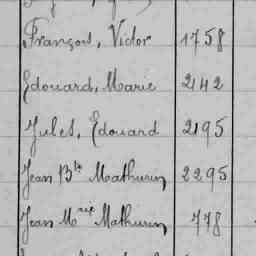 François, Victor 1758
Edouard, Marie 2142
Jules, Edouard 2195
Jean Bte Mathurin 2295
Jean Mrie Mathurin 778